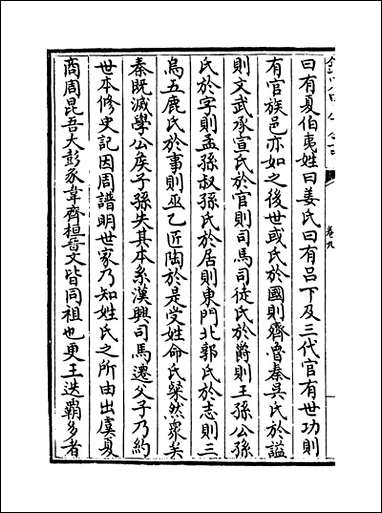 曰有夏伯夷姓曰姜氏曰有吕下及三代官有世功則
有官族邑亦如之後世或氏於國則齊魯秦吳氏於謚
則文武承宣氏於官則司馬司徒氏於爵則王孫公孫
氏於字則孟孫叔孫氏於居則東門北郭氏於志則三
烏五鹿氏於事則巫乙匠陶於是受姓命氏粲然衆矣
秦既滅學公矦子孫失其本系漢興司馬遷父子乃約
世本修史記因周譜明世家乃知姓氏之所由出虞夏
商周昆吾大彭豕韋齊桓晉文皆同祖也更王迭霸多者
卷九